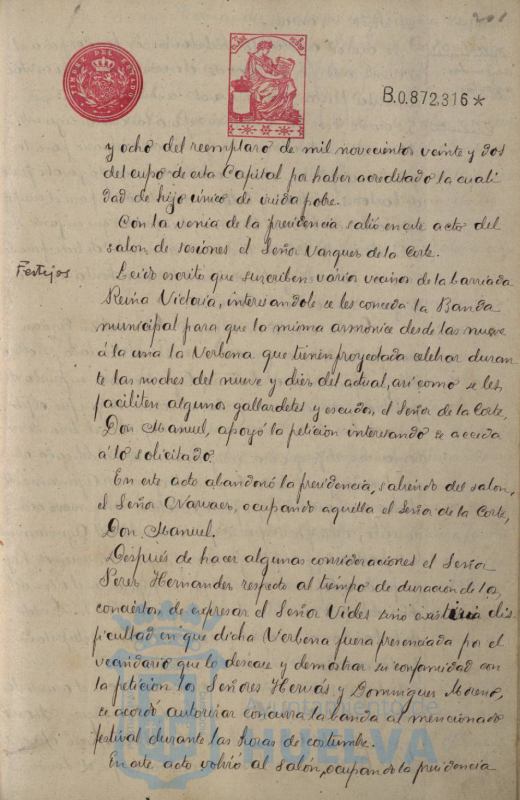 201
TIMBRE DEL ESTADO
B.0.872,316*
y ocho del reemplazo de mil novecientos veinte y dos
del cupo de esta Capital por haber acreditado la cuali
dad de hijo único de viuda pobre.
Con la venia de la presidencia salió en este acto del
salon de sesiones el Señor Vazquez de la Corte.
Festejos
Leido escrito que suscriben varios vecinos de la barriada
Reina Victoria, interesandole se les conceda la Banda
municipal para que la misma armonice desde las nueve
á la una la Verbena que tienen proyectada celebrar duran
te las noches del nueve y diez del actual, así como se les
faciliten algunos gallardetes y escudos, el Señor de la Corte,
Don Manuel, apoyó la petición interesando se acceda
á lo solicitado.
En este acto abandonó la presidencia, saliendo del salon,
el Señor Narvaez, ocupando aquella el Señor de la Corte,
Don Manuel.
Después de hacer algunas consideraciones el Señor
Perez Hernandez respecto al tiempo de duración de los
conciertos de expresar el Señor Vides sino existiria difi
ficultad en que dicha Verbena fuera presenciada por el
vecindario que lo desease y demostrar su conformidad con
la petición los Señores Hervás y Dominguez Moreno,
se acordó autorizar concurra la banda al mencionado
festival durante las horas de costumbre.
En este acto volvió al salón, ocupando la presidencia
Ayuntamiento de
HUELVA